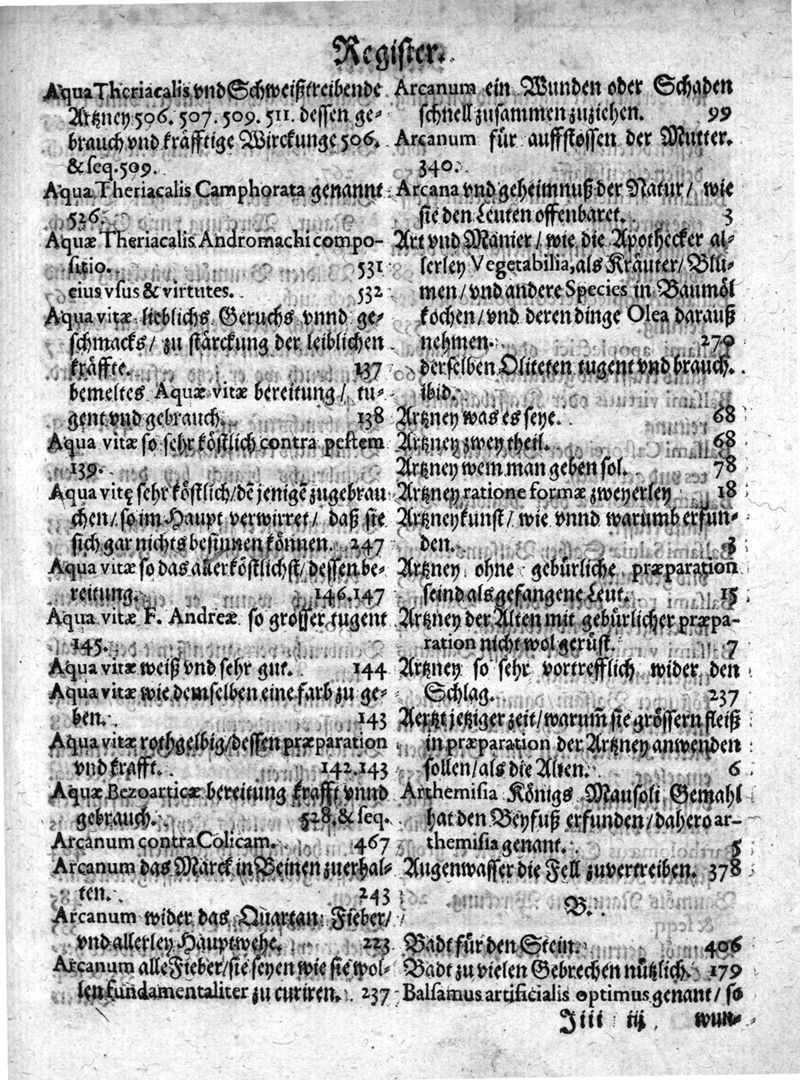 Register.
Aqua Theriacalis vnd Schweißtreibende
Artzney 506. 507. 509. 511. dessen ge-
brauch vnd kräfftige Wirckunge 506.
& seq. 509.
Aqua Theriacalis Camphorata genannt
526.
Aquæ Theriacalis Andromachi compo-
sitio. 531
eius vsus & virtutes. 532
Aqua vitæ lieblichs Geruchs vnnd ge-
schmacks / zu stärckung der leiblichen
kräffte. 137
bemeltes Aquæ vitæ bereitung / tu-
gent vnd gebrauch. 138
Aqua vitæ so sehr köstlich contra pestem
139.
Aqua vitę sehr köstlich / dē jenigē zugebrau
chen / so im Haupt verwirret / daß sie
sich gar nichts besinnen können. 247
Aqua vitæ so das allerköstlichst / dessen be-
reitung. 146.147
Aqua vitæ F. Andreæ so grosser tugent
145.
Aqua vitæ weiß vnd sehr gut. 144
Aqua vitæ wie demselben eine farb zu ge-
ben. 143
Aqua vitæ rothgelbig / dessen præparation
vnd krafft. 142.143
Aquæ Bezoarticæ bereitung krafft vnnd
gebrauch. 528. & seq.
Arcanum contra Colicam. 467
Arcanum das Marck in Beinen zuerhal-
ten. 243
Arcanum wider das Quartan Fieber /
vnd allerley Hauptwehe. 223
Arcanum alle Fieber / sie seyen wie sie wol-
len fundamentaliter zu curiren. 237
Arcanum ein Wunden oder Schaden
schnell zusammen zuziehen. 99
Arcanum für auffstossen der Mutter.
340.
Arcana vnd geheimnuß der Natur / wie
sie den Leuten offenbaret. 3
Art vnd Manier / wie die Apothecker al-
lerley Vegetabilia, als Kräuter / Blu-
men / vnd andere Species in Baumöl
kochen / vnd deren dinge Olea darauß
nehmen. 270
derselben Oliteten tugent vnd brauch.
ibid.
Artzney was es seye. 68
Artzney zwey theil. 68
Artzney wem man geben sol. 78
Artzney ratione formæ zweyerley 18
Artzneykunst / wie vnnd warumb erfun-
den. 3
Artzney ohne gebürliche præparation
seind als gefangene Leut. 15
Artzney der Alten mit gebürlicher præpa-
ration nicht wol gerüst. 7
Artzney so sehr vortrefflich wider den
Schlag. 237
Aertzt jetziger zeit / warum̄ sie grössern fleiß
in præparation der Artzney anwenden
sollen / als die Alten. 6
Arthemisia Königs Mausoli Gemahl
hat den Beyfuß erfunden / dahero ar-
themisia genant. 5
Augenwasser die Fell zuvertreiben. 378
B.
Badt für den Stein. 406
Badt zu vielen Gebrechen nützlich. 179
Balsamus artificialis optimus genant / so
Iiii iij wun-